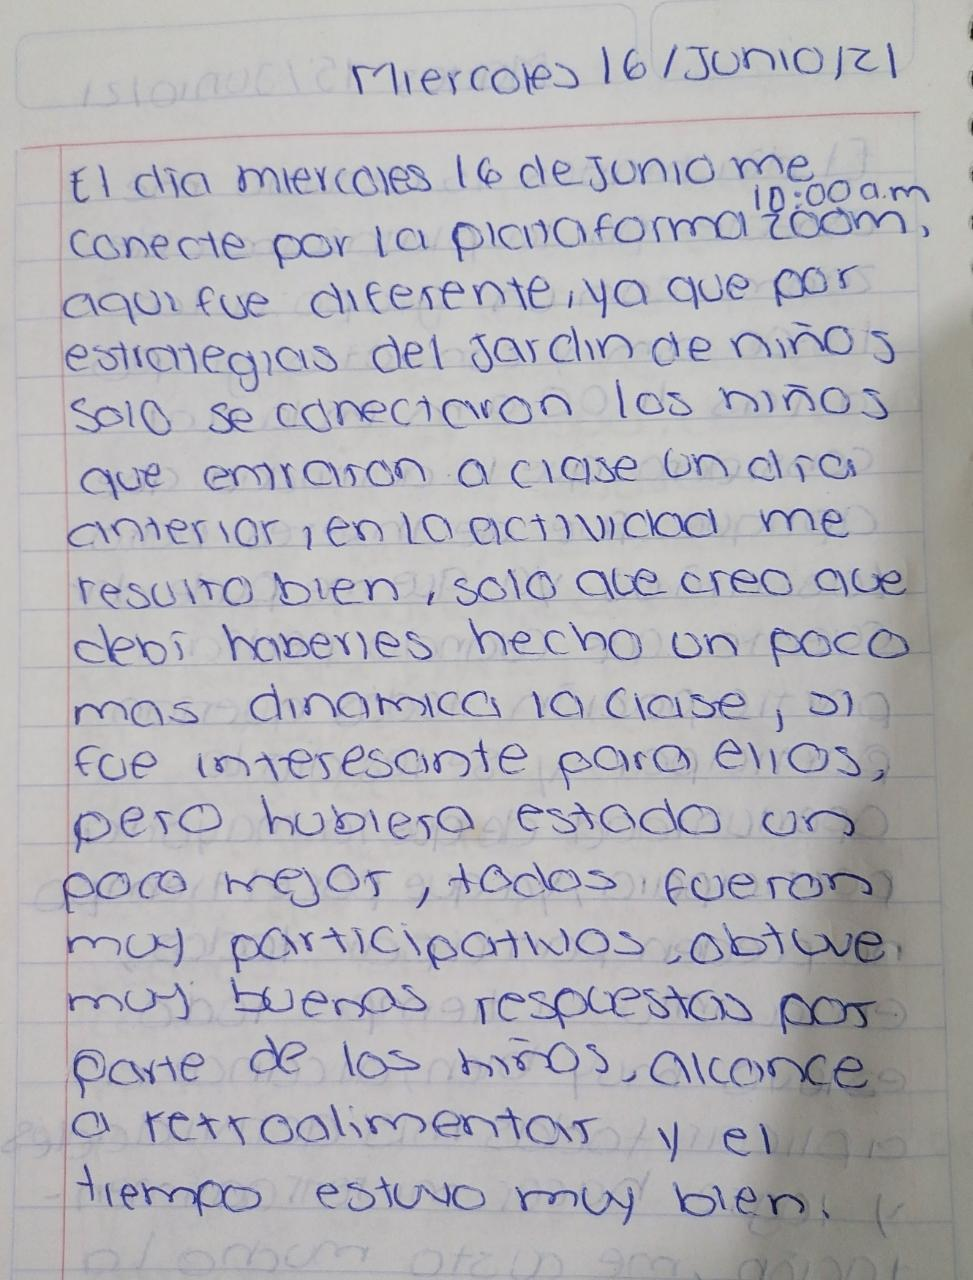 Miercoles 16/Junio/21
El dia miercoles 16 de Junio me
10:00 a.m
conecte por la plataforma zoom,
aqui fue diferente, ya que por
estrategias del Jardin de niños
solo se conectaron los niños
que entraron a clase un dia
anterior, en la actividad me
resulto bien, solo que creo que
debi haberles hecho un poco
mas dinamica la clase, si
fue interesante para ellos,
pero hubiera estado un
poco mejor, todos fueron
muy participativos, obtuve
muy buenas respuestas por
parte de los niños, alcance
a retroalimentar y el
tiempo estuvo muy bien.